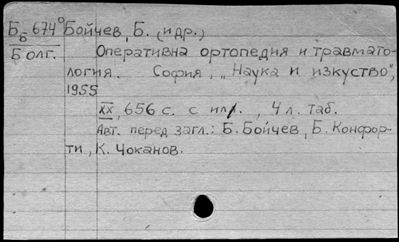 Б₆-674⁰ Бойчев, Б. (и др.)
Болг. Оперативна ортопедия и травмато-
логия. София, „Наука и изкуство",
1955
XX, 656 с. с ил., 4 л. таб.
Авт. перед загл.: Б. Бойчев, Б. Конфор-
ти, К. Чоканов.